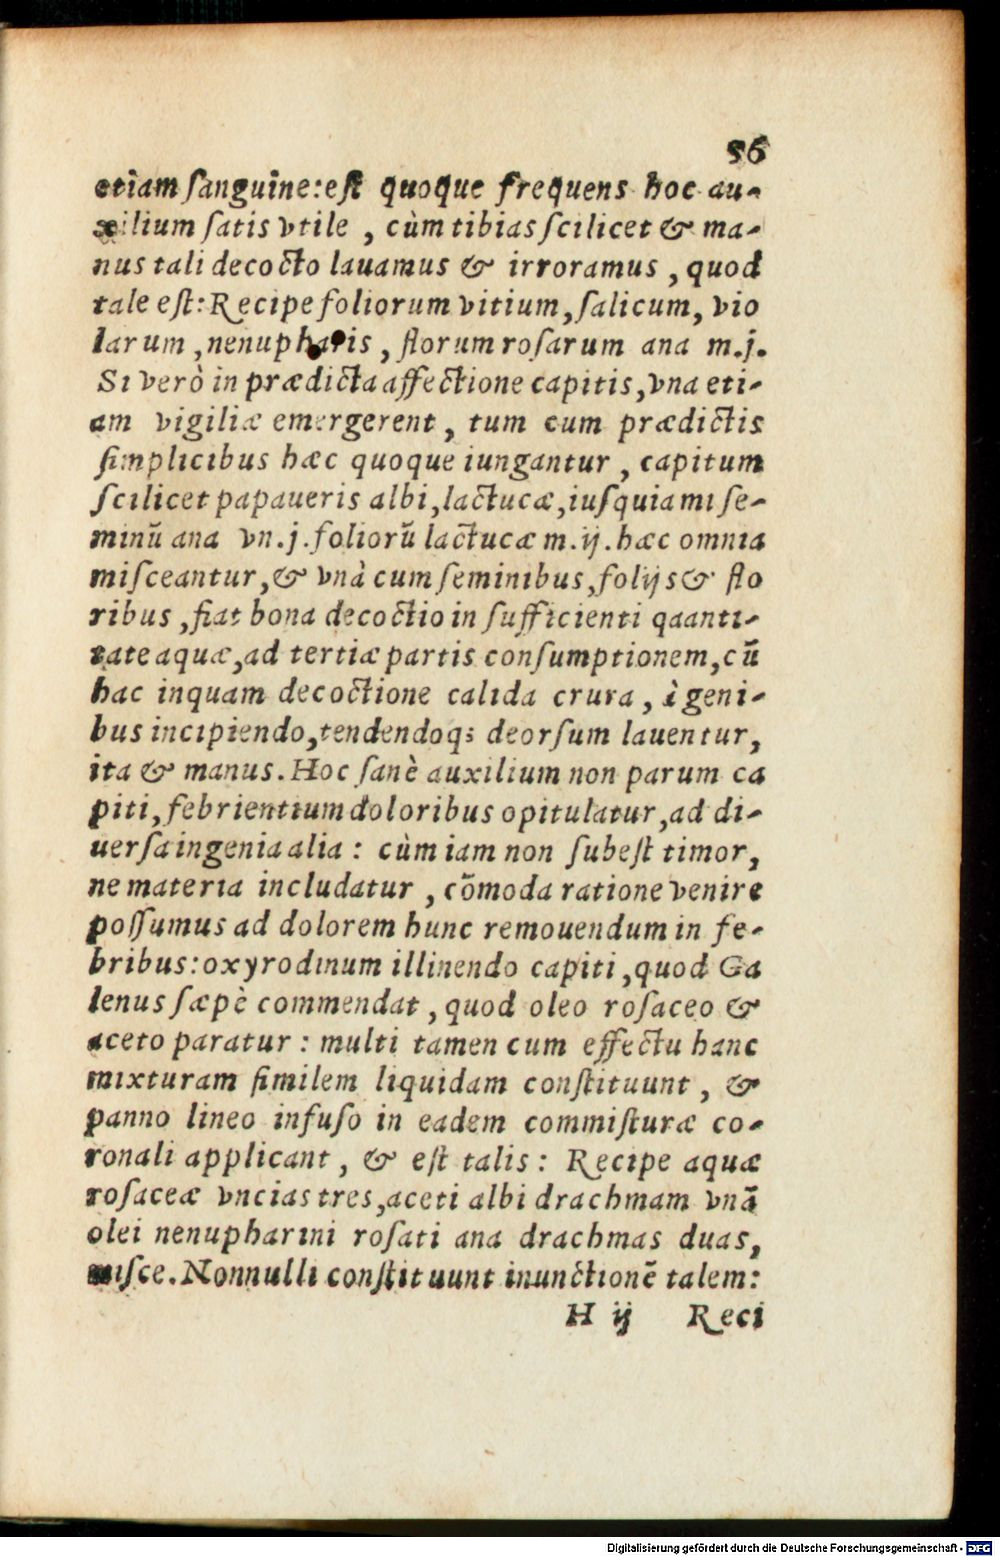 56
etiam ſanguine:eſt quoque frequens hoc au-
xilium ſatis vtile , cùm tibias ſcilicet & ma-
nus tali decocto lauamus & irroramus , quod
tale eſt: Recipe foliorum vitium, ſalicum, vio
larum , nenupharis , florum roſarum ana m.j.
Si verò in prædicta affectione capitis, vna eti-
am vigiliæ emergerent , tum cum prædictis
ſimplicibus hæc quoque iungantur , capitum
ſcilicet papaueris albi, lactucæ, iuſquiami ſe-
minū ana vn.j. foliorū lactucæ m.ij. hæc omnia
miſceantur, & vnà cum ſeminibus, folijs & flo
ribus , fiat bona decoctio in ſufficienti qaanti-
tate aquæ, ad tertiæ partis conſumptionem, cū
hac inquam decoctione calida crura , à geni-
bus incipiendo, tendendoq; deorſum lauentur,
ita & manus. Hoc ſanè auxilium non parum ca
piti, febrientium doloribus opitulatur, ad di-
uerſa ingenia alia : cùm iam non ſubeſt timor,
ne materia includatur , cōmoda ratione venire
poſſumus ad dolorem hunc remouendum in fe-
bribus: oxyrodinum illinendo capiti, quod Ga
lenus ſæpè commendat , quod oleo roſaceo &
aceto paratur : multi tamen cum effectu hanc
mixturam ſimilem liquidam conſtituunt , &
panno lineo infuſo in eadem commiſturæ co-
ronali applicant , & eſt talis : Recipe aquæ
roſaceæ vncias tres, aceti albi drachmam vnā
olei nenupharini roſati ana drachmas duas,
miſce. Nonnulli conſtituunt inunctionē talem:
H ij Reci
Digitalisierung gefördert durch die Deutsche Forschungsgemeinschaft - DFG